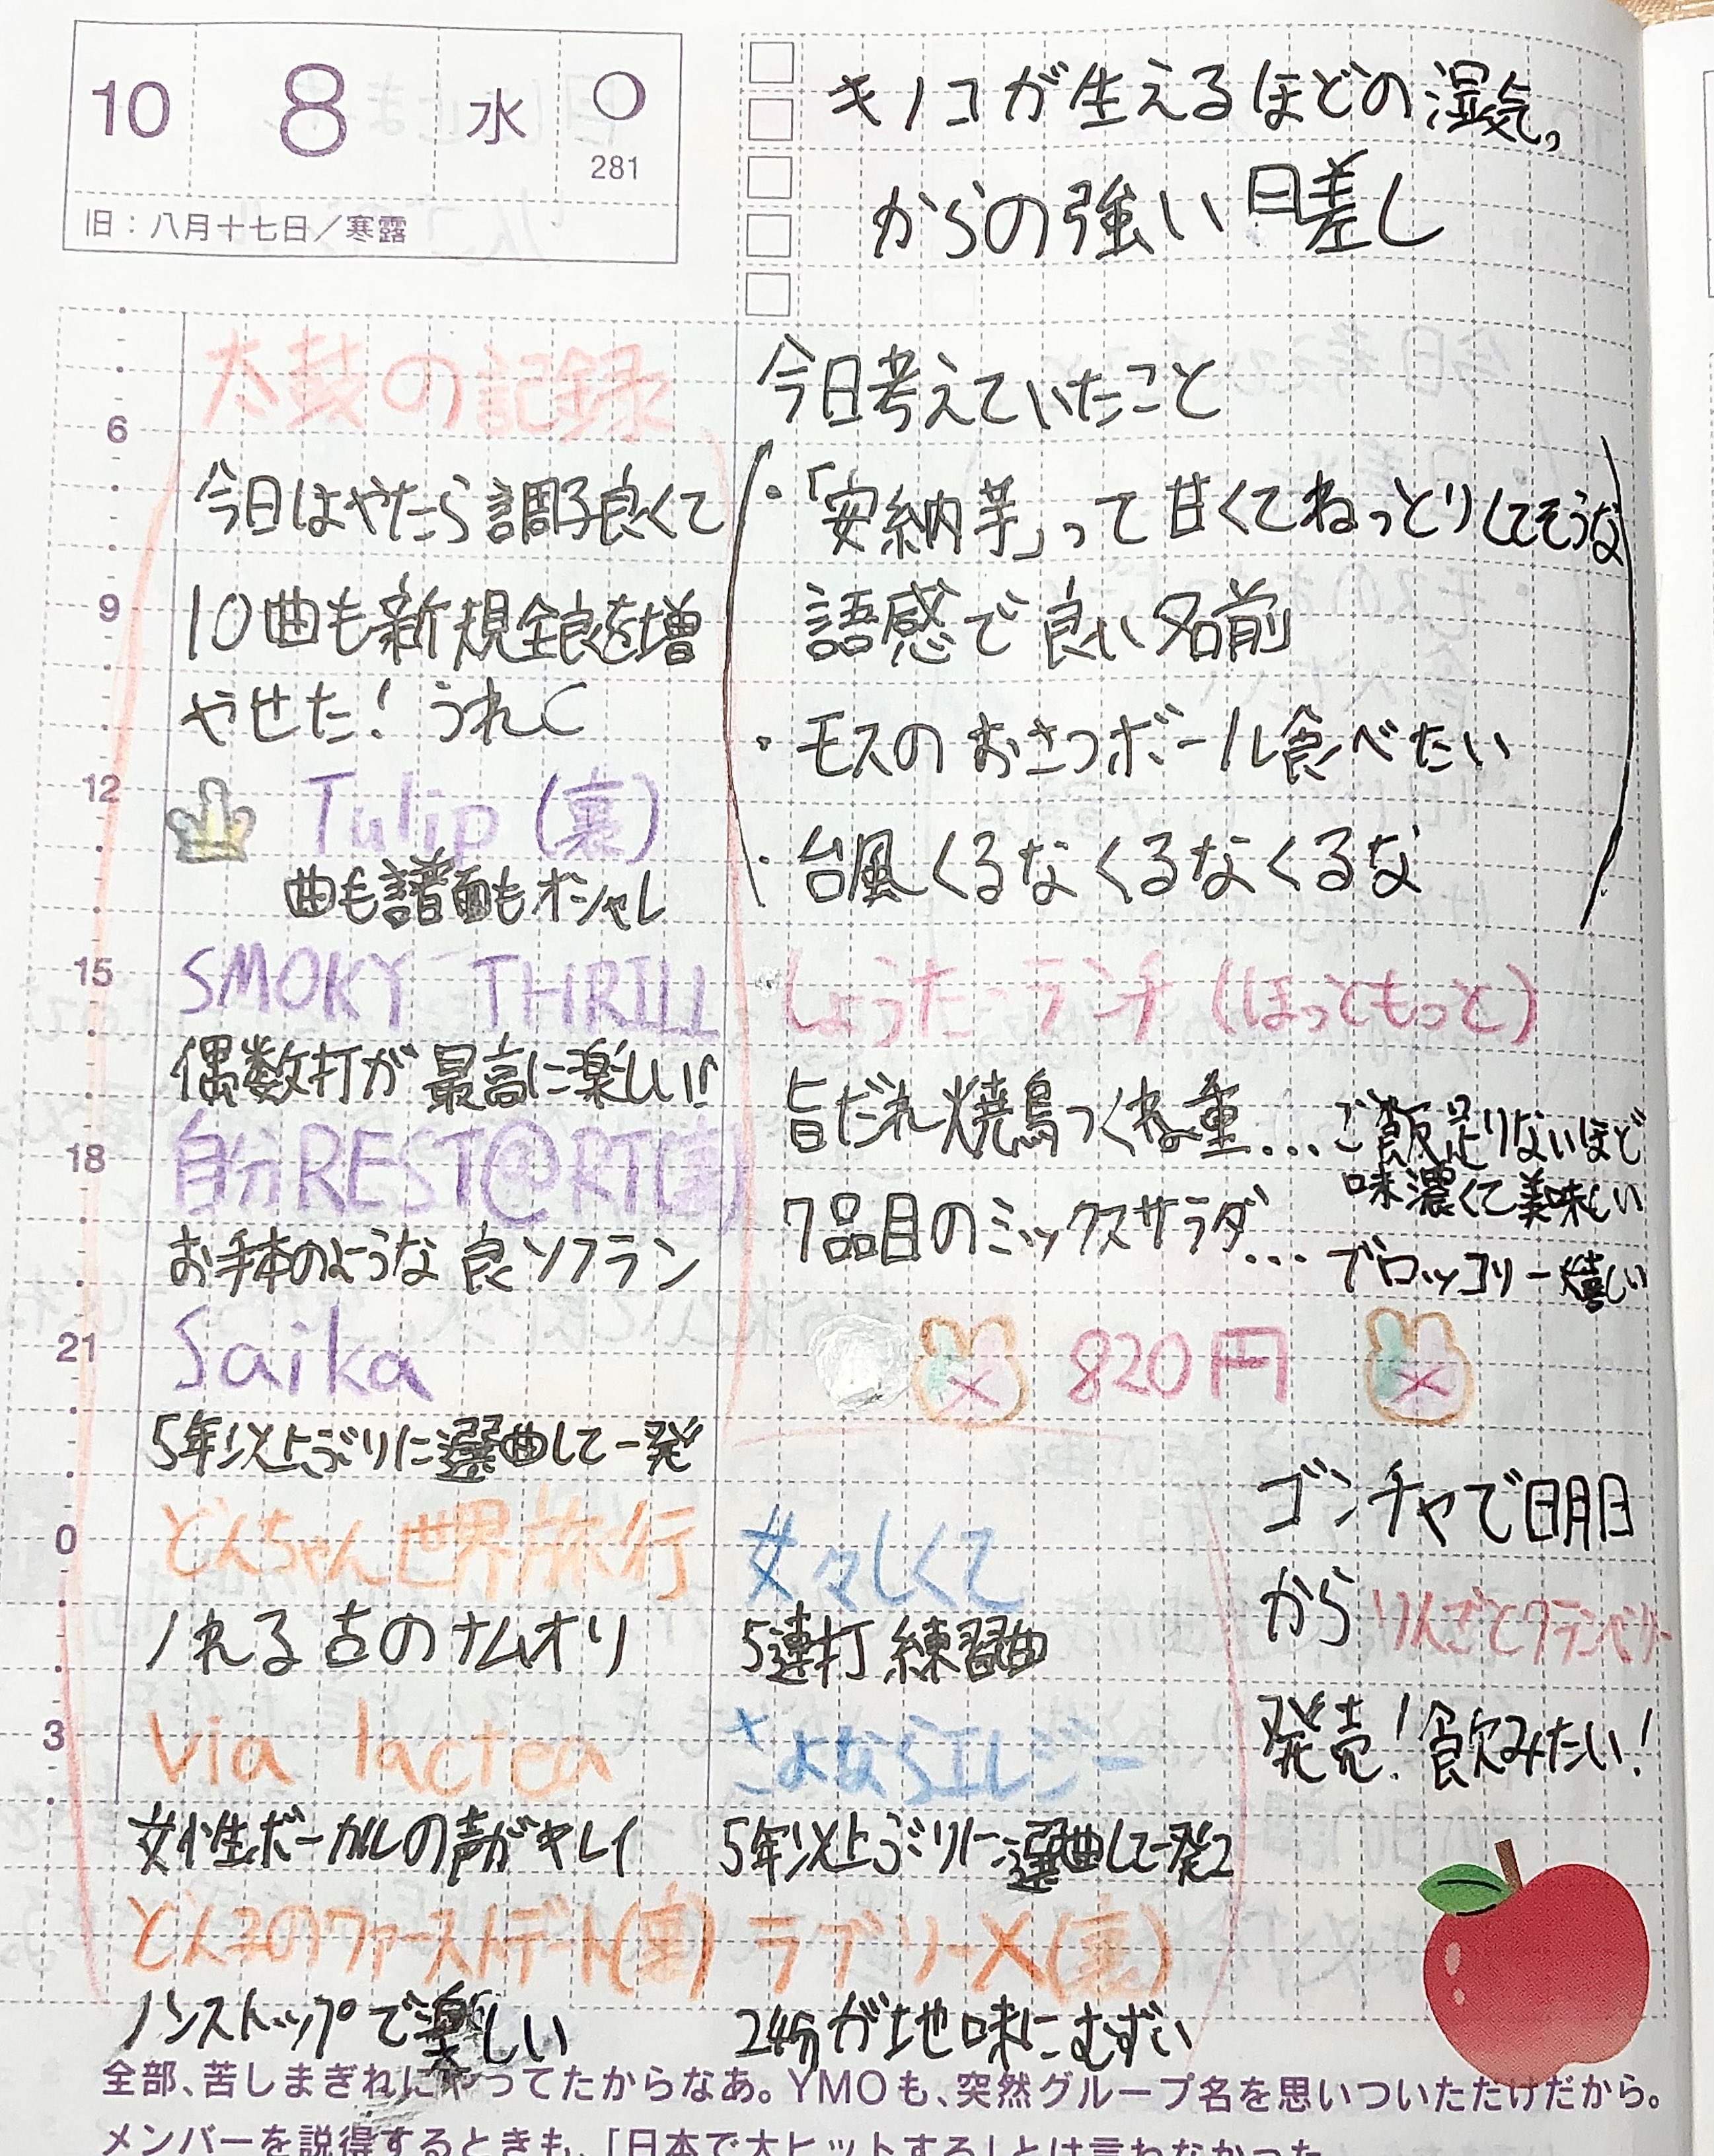 10 8 水
281
旧：八月十七日／寒露
キノコが生えるほどの湿気、
からの強い日差し
6
9
12
15
18
21
0
3
太鼓の記録
今日はやたら調子良くて
10曲も新規全良を増
やせた！うれし
Tulip（裏）
曲も譜面もオシャレ
SMOKY THRILL
偶数打が最高に楽しい!!
自分REST@RT(裏)
お手本のような良ソフラン
Saika
5年以上ぶりに選曲して一発
どんちゃん世界旅行
ノれる古のナムオリ
Via lactea
女性ボーカルの声がキレイ
どん子のファーストデート(裏)
ノンストップで楽しい
今日考えていたこと
・「安納芋」って甘くてねっとりしてそうな
語感で良い名前
・モスのおさつボール食べたい
・台風くるなくるなくるな
しょうたーランチ（ほっともっと）
旨だれ焼鳥つくね重…ご飯足りないほど
味濃くて美味しい
7品目のミックスサラダ…ブロッコリー嬉しい
820円
女々しくて
5連打練習曲
さよならエレジー
5年以上ぶりに選曲して一発2
ラブリーX(裏)
24分が地味にむずい
ゴンチャで明日
からりんごとクランベリー
発売！飲みたい！
全部、苦しまぎれにやってたからなあ。YMOも、突然グループ名を思いついただけだから。
メンバーを説得するときも、「日本で大ヒットする」とは言わなかった